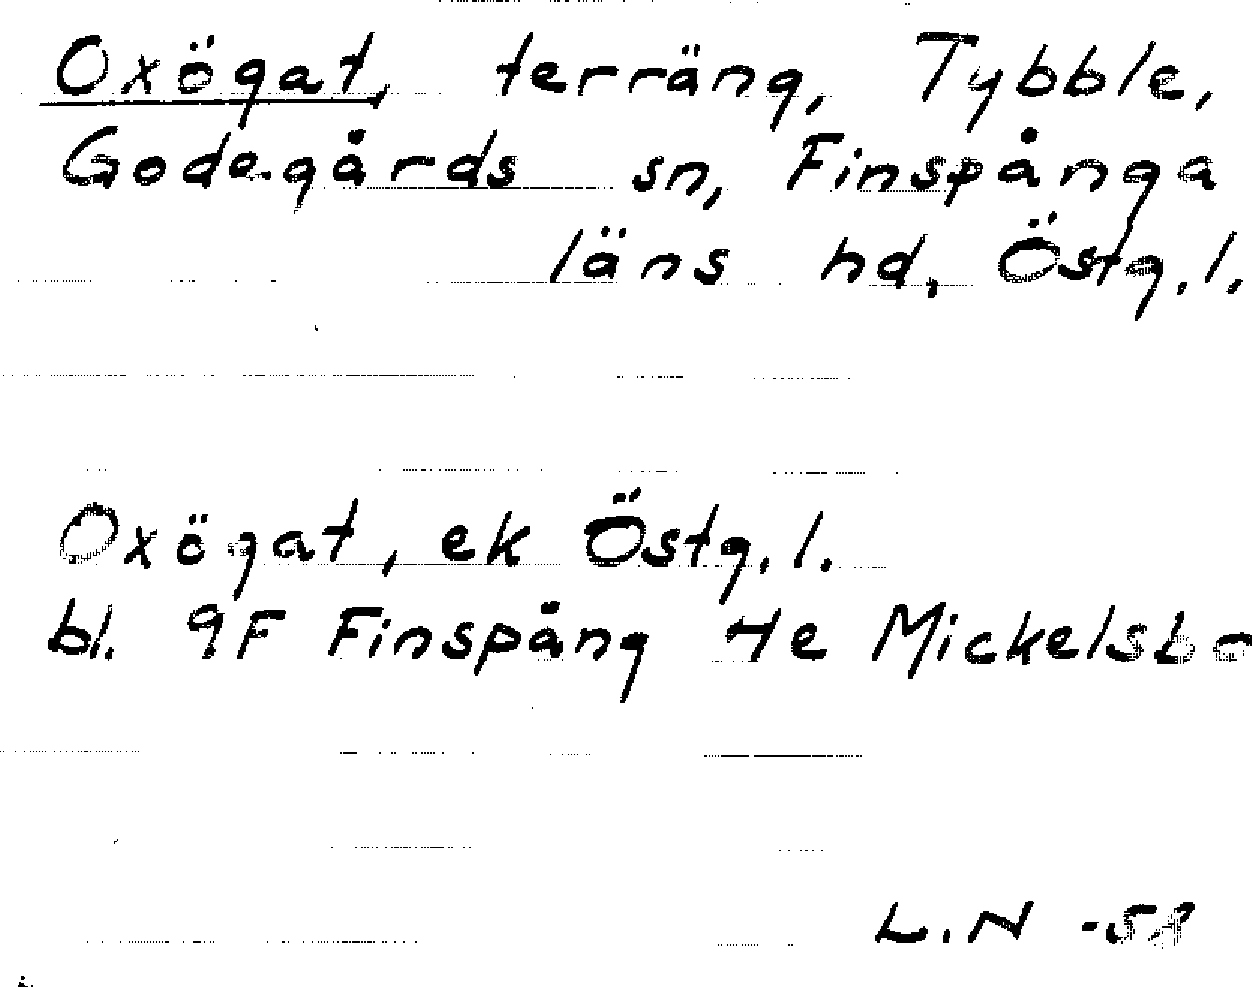 Oxögat, terräng, Tybble,
Godegårds sn, Finspånga
läns hd, Östg.l.
Oxögat, ek Östg.l.
bl. 9F Finspång 4e Mickelsbo
L.N -58